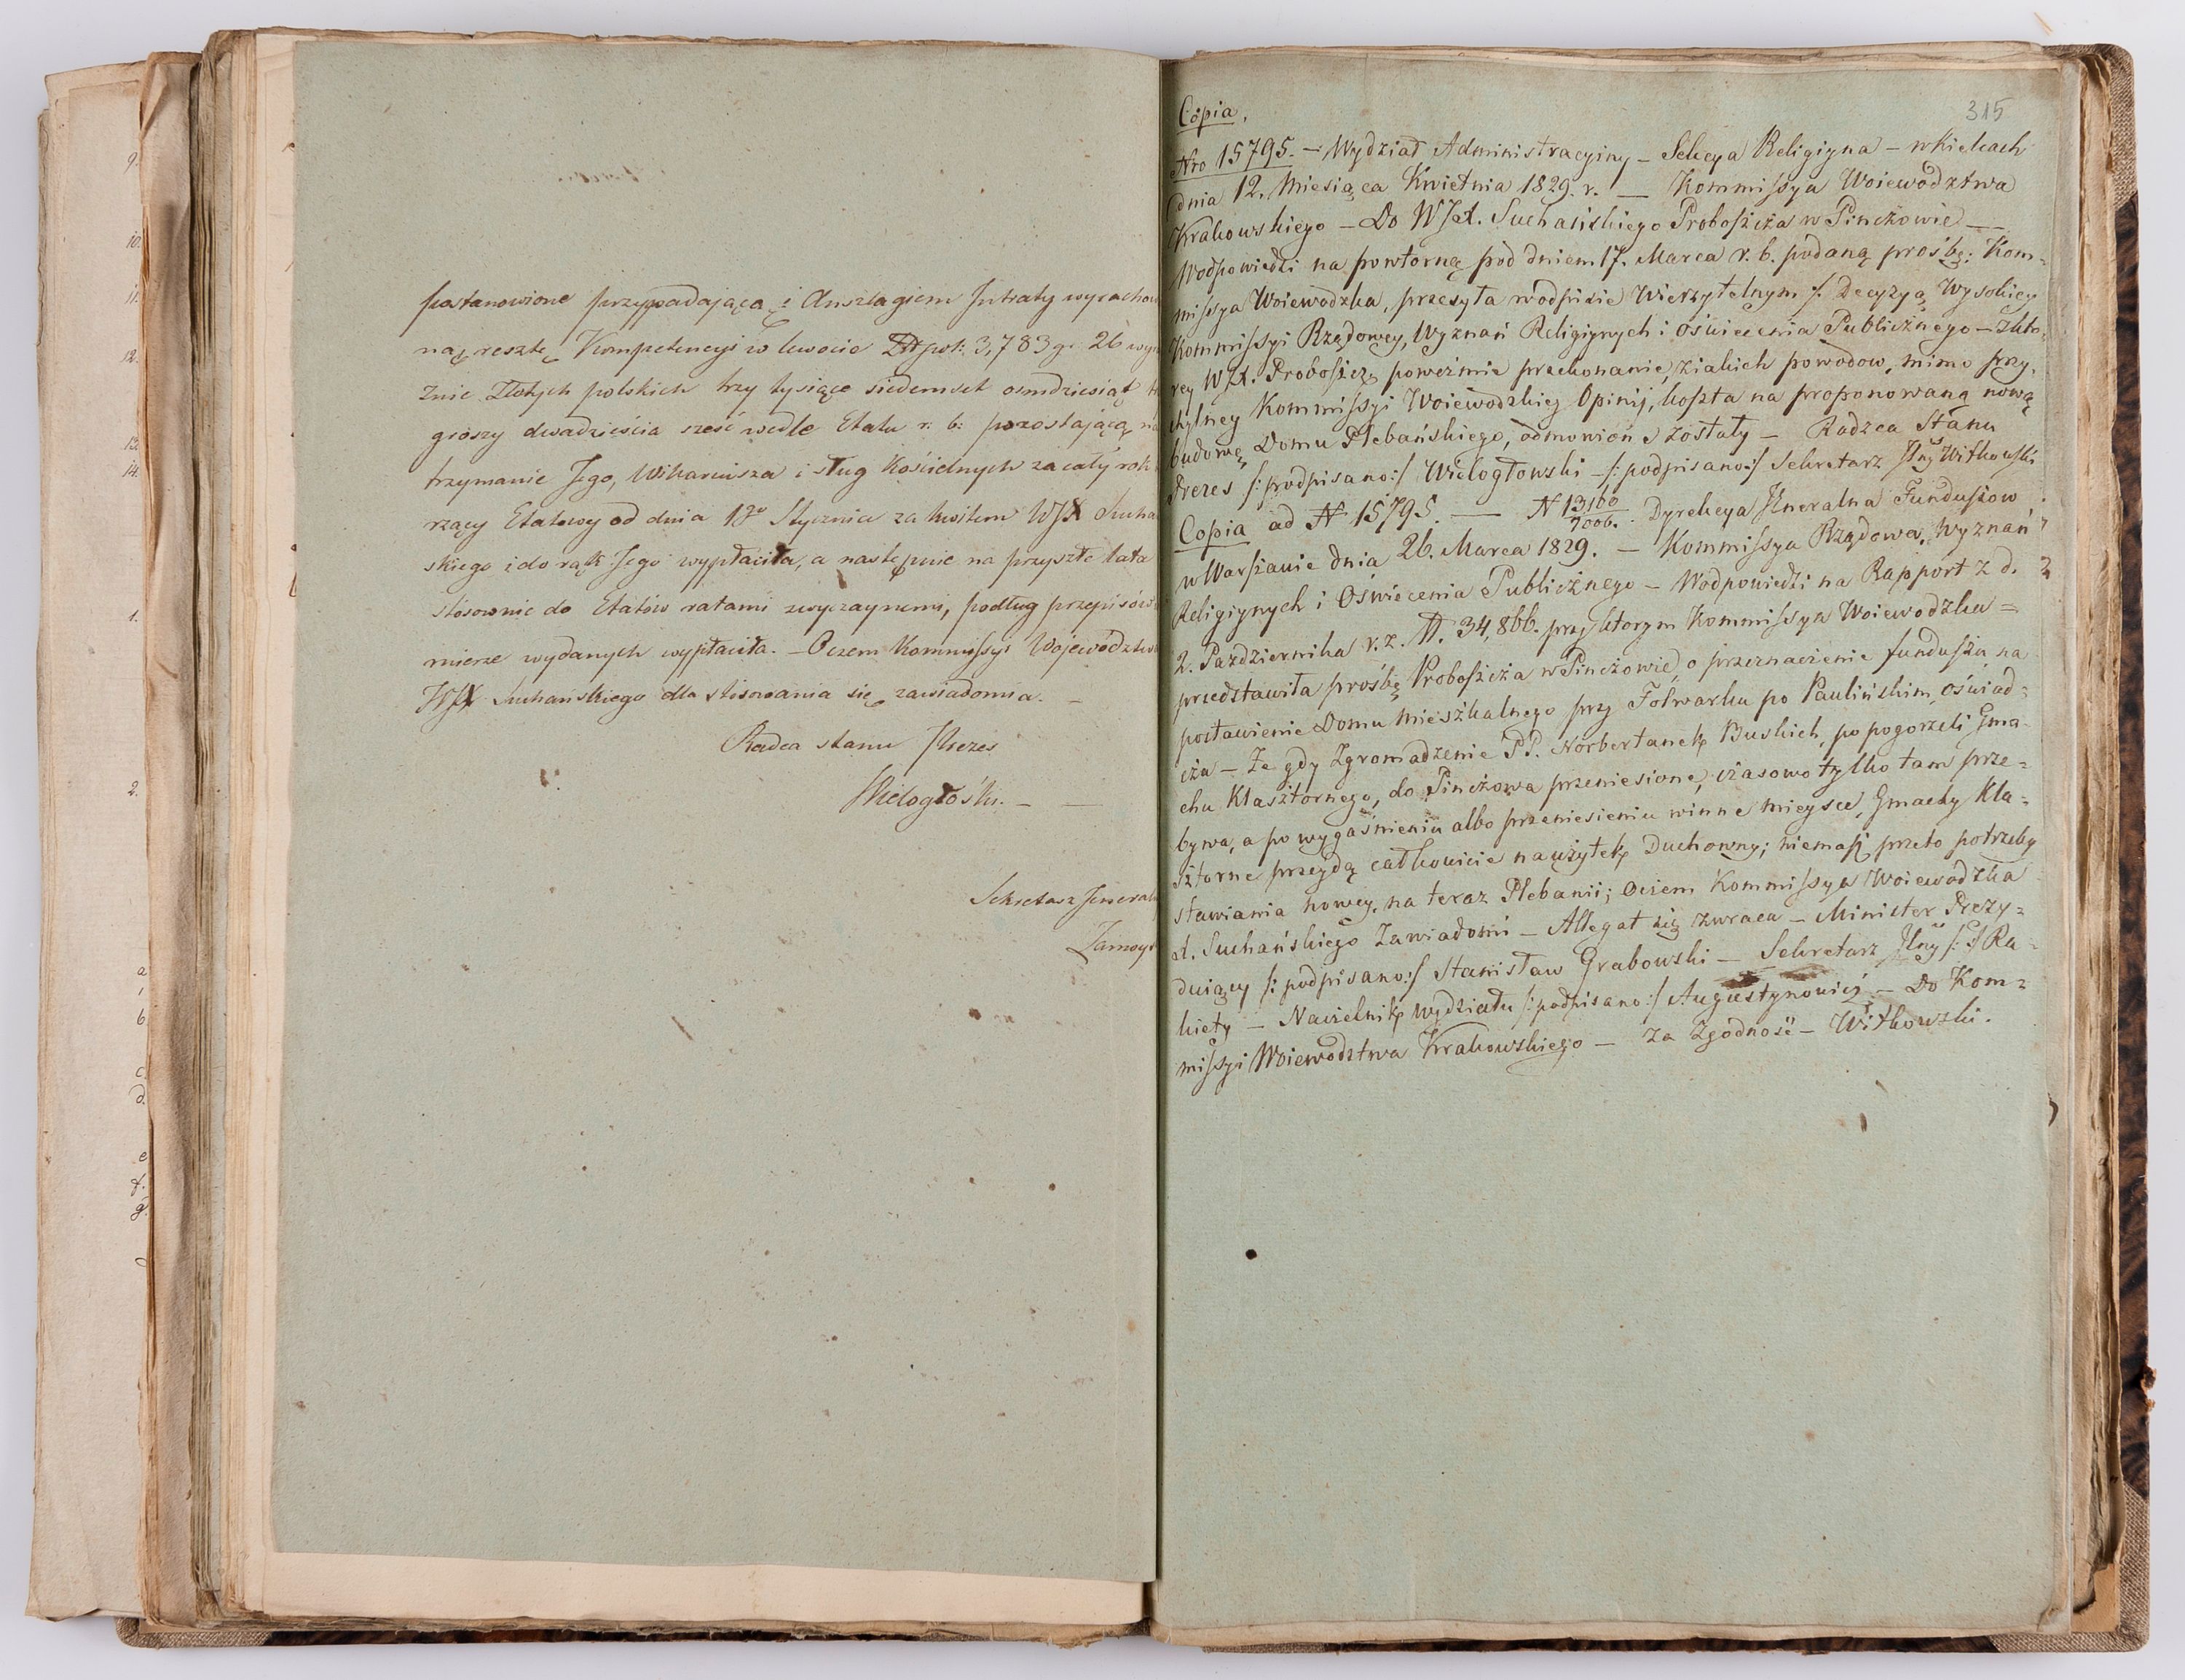 postanowione przypadającą i Anszlagiem Intraty wyracho
ną resztę Kompetencyi w kwocie Złtpol: 3,783 gr 26 wy
znie Złotych polskich trzy tysiące siedemset osmdziesiąt
groszy dwadzieścia sześć wedle Etatu r: b: pozostającą na
trzymanie Jego, Wikariusza i sług Kościelnych za cały rok
rzący Etatowy od dnia 1go Stycznia za kwitem WJX Sucha
skiego i do rąk Jego wypłaciła, a następnie na przyszłe lata
stósownie do Etatów ratami zwyczaynemi, podług przepisów
mierze wydanych wypłaciła. – Oczem Kommissyi Wojewódz
WJX Suchańskiego dla stósowania się zawiadomia. –
Radca stanu Prezes
Wielogłoski. – –
Sekretarz Jeneral
Zamoys
315
Copia,
Nro 15795. – Wydział Administracyiny – Sekcya Religiyna – w Kielcach
dnia 12. Miesiąca Kwietnia 1829. r. — Kommissya Woiewodztwa
Krakowskiego – Do WJX. Suchańskiego Proboszcza w Pinczowie —
Wodpowiedzi na powtorną pod dniem 17. Marca r. b. podaną prosbę; Kom=
missya Woiewodzka, przesyła w odpisie Wierzytelnym /. Decyzyą Wysokiey
Kommissyi Rządowey, Wyznań Religiynych i oświecenia Publicznego – Zkto=
rey WJX. Proboszcz poweźmie przekonanie, ziakich powodow, mimo przy,
chylney Kommissyi Woiewodzkiey Opinij, koszta na proponowaną nową
budowę Domu Plebańskiego, odmowione zostały – Radzca Stanu
Prezes /:podpisano:/ Wielogłowski – /:podpisano:/ Sekretarz Jlny Witkowski
Copia ad N 15795. — N 13160/7006. Dyrekcya Jeneralna Funduszow
w Warszawie dnia 26. Marca 1829. – Kommissya Rządowa, Wyznań
Religiynych i Oświecenia Publicznego – Wodpowiedzi na Rapport z d. 2
2. Pazdziernika r. z. N. 34,866. przy ktorym Kommissya Woiewodzka =
przedstawiła prośbę Proboszcza w Pinczowie, o przeznaczenie funduszu na
postawienie Domu Mieszkalnego przy Folwarku po Paulińskim, oświad=
cza – Ze gdy Zgromadzenie PP. Norbertanek Buskich, po pogorzeli Gma
chu Klasztornego, do Pinczowa przeniesione, czasowo tylko tam prze=
bywa, a po wygaśnieniu albo przeniesieniu w inne mieysce, Gmachy Kla=
sztorne przeydą całkowicie na użytek Duchowny; niemasz przeto potrzeby
stawiania nowey, na teraz Plebanii; oczem Kommissya Woiewodzka
X. Suchańskiego Zawiadomi – Allegat się zwraca – Minister Prezy=
duiący /: podpisano:/ Stanisław Grabowski – Sekretarz Jlny /:/ Ra=
kiety – Naczelnik Wydziału /:podpisano:/ Augustynowicz – Do Kom=
missyi Woiewodztwa Krakowskiego – Za Zgodność – Witkowski.